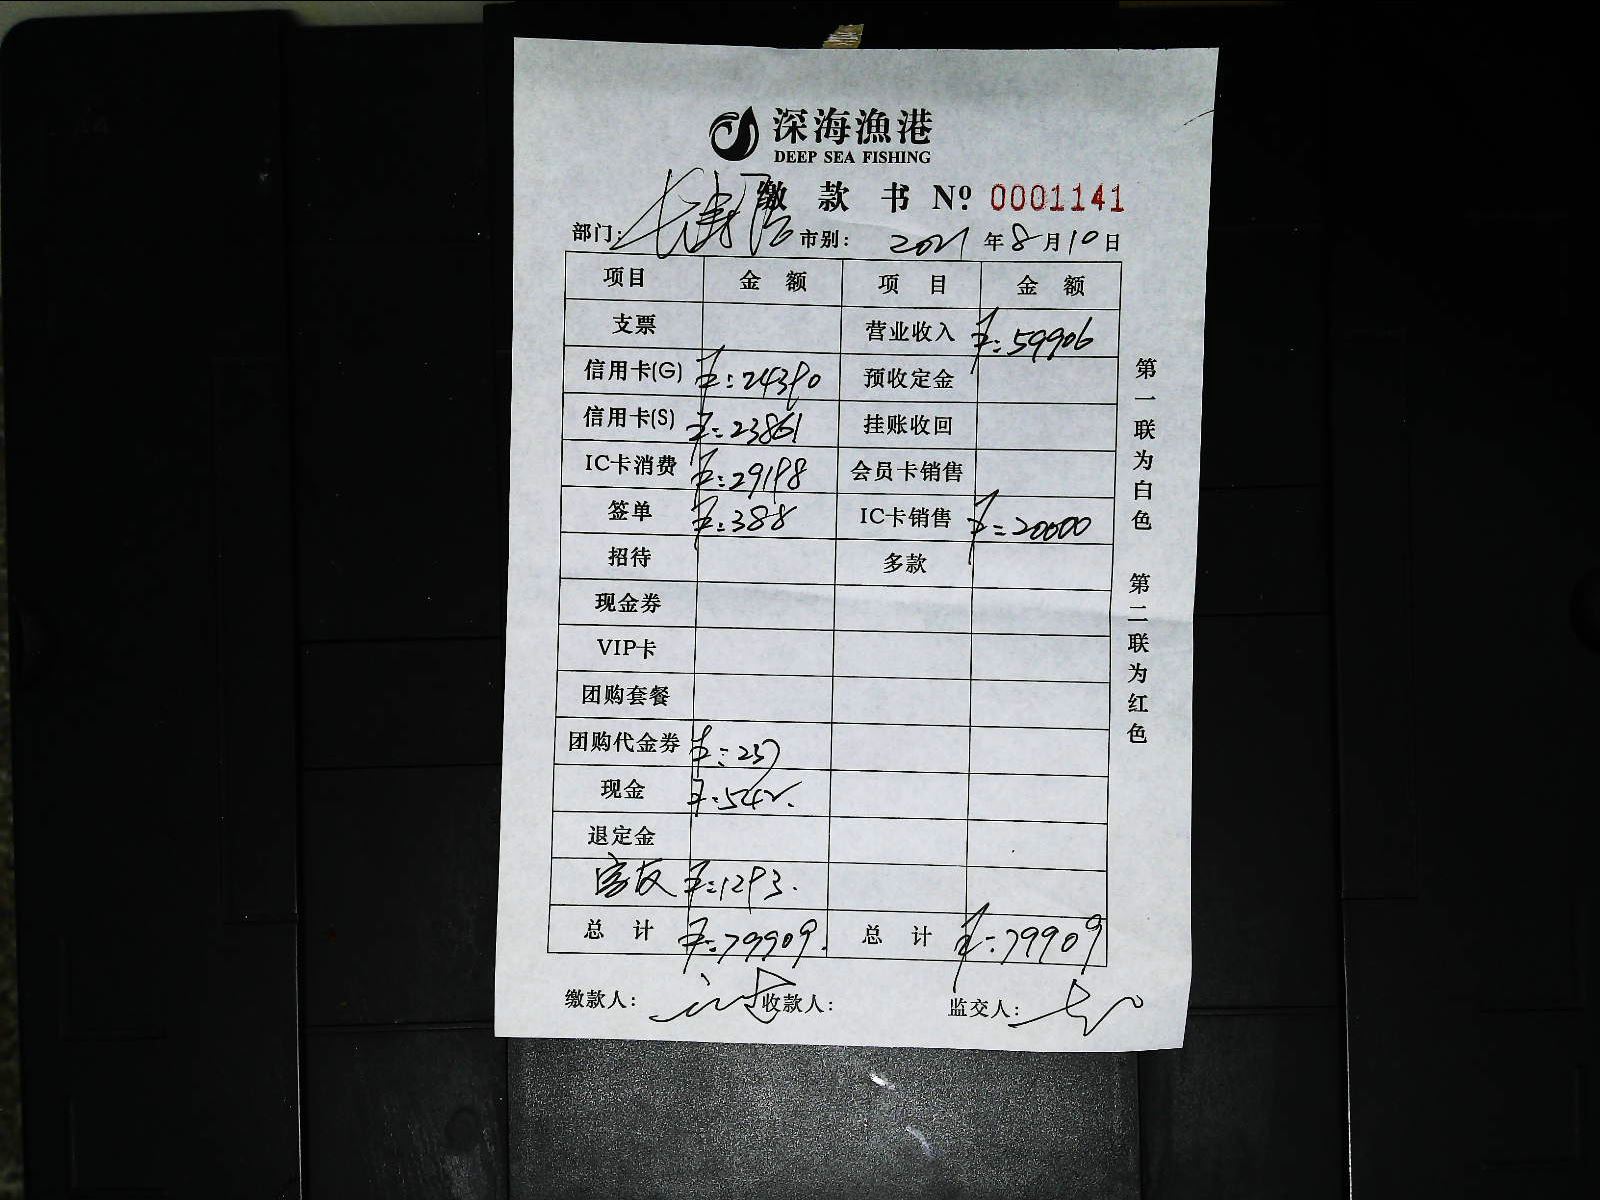 深海漁港
DEEP SEA FISHING
缴款书 Nº 0001141
部门: 市别: 2021年8月10日
项目 金额 项目 金额
支票 营业收入 ¥:59906
信用卡(G) ¥:24390 预收定金
信用卡(S) ¥:23861 挂账收回
IC卡消费 ¥:29198 会员卡销售
签单 ¥:388 IC卡销售 ¥:20000
招待 多款
现金券
VIP卡
团购套餐
团购代金券 ¥:237
现金 ¥:542.
退定金
¥:1293.
总计 ¥:79909. 总计 ¥:79909
缴款人: 收款人: 监交人:
第一联为白色 第二联为红色